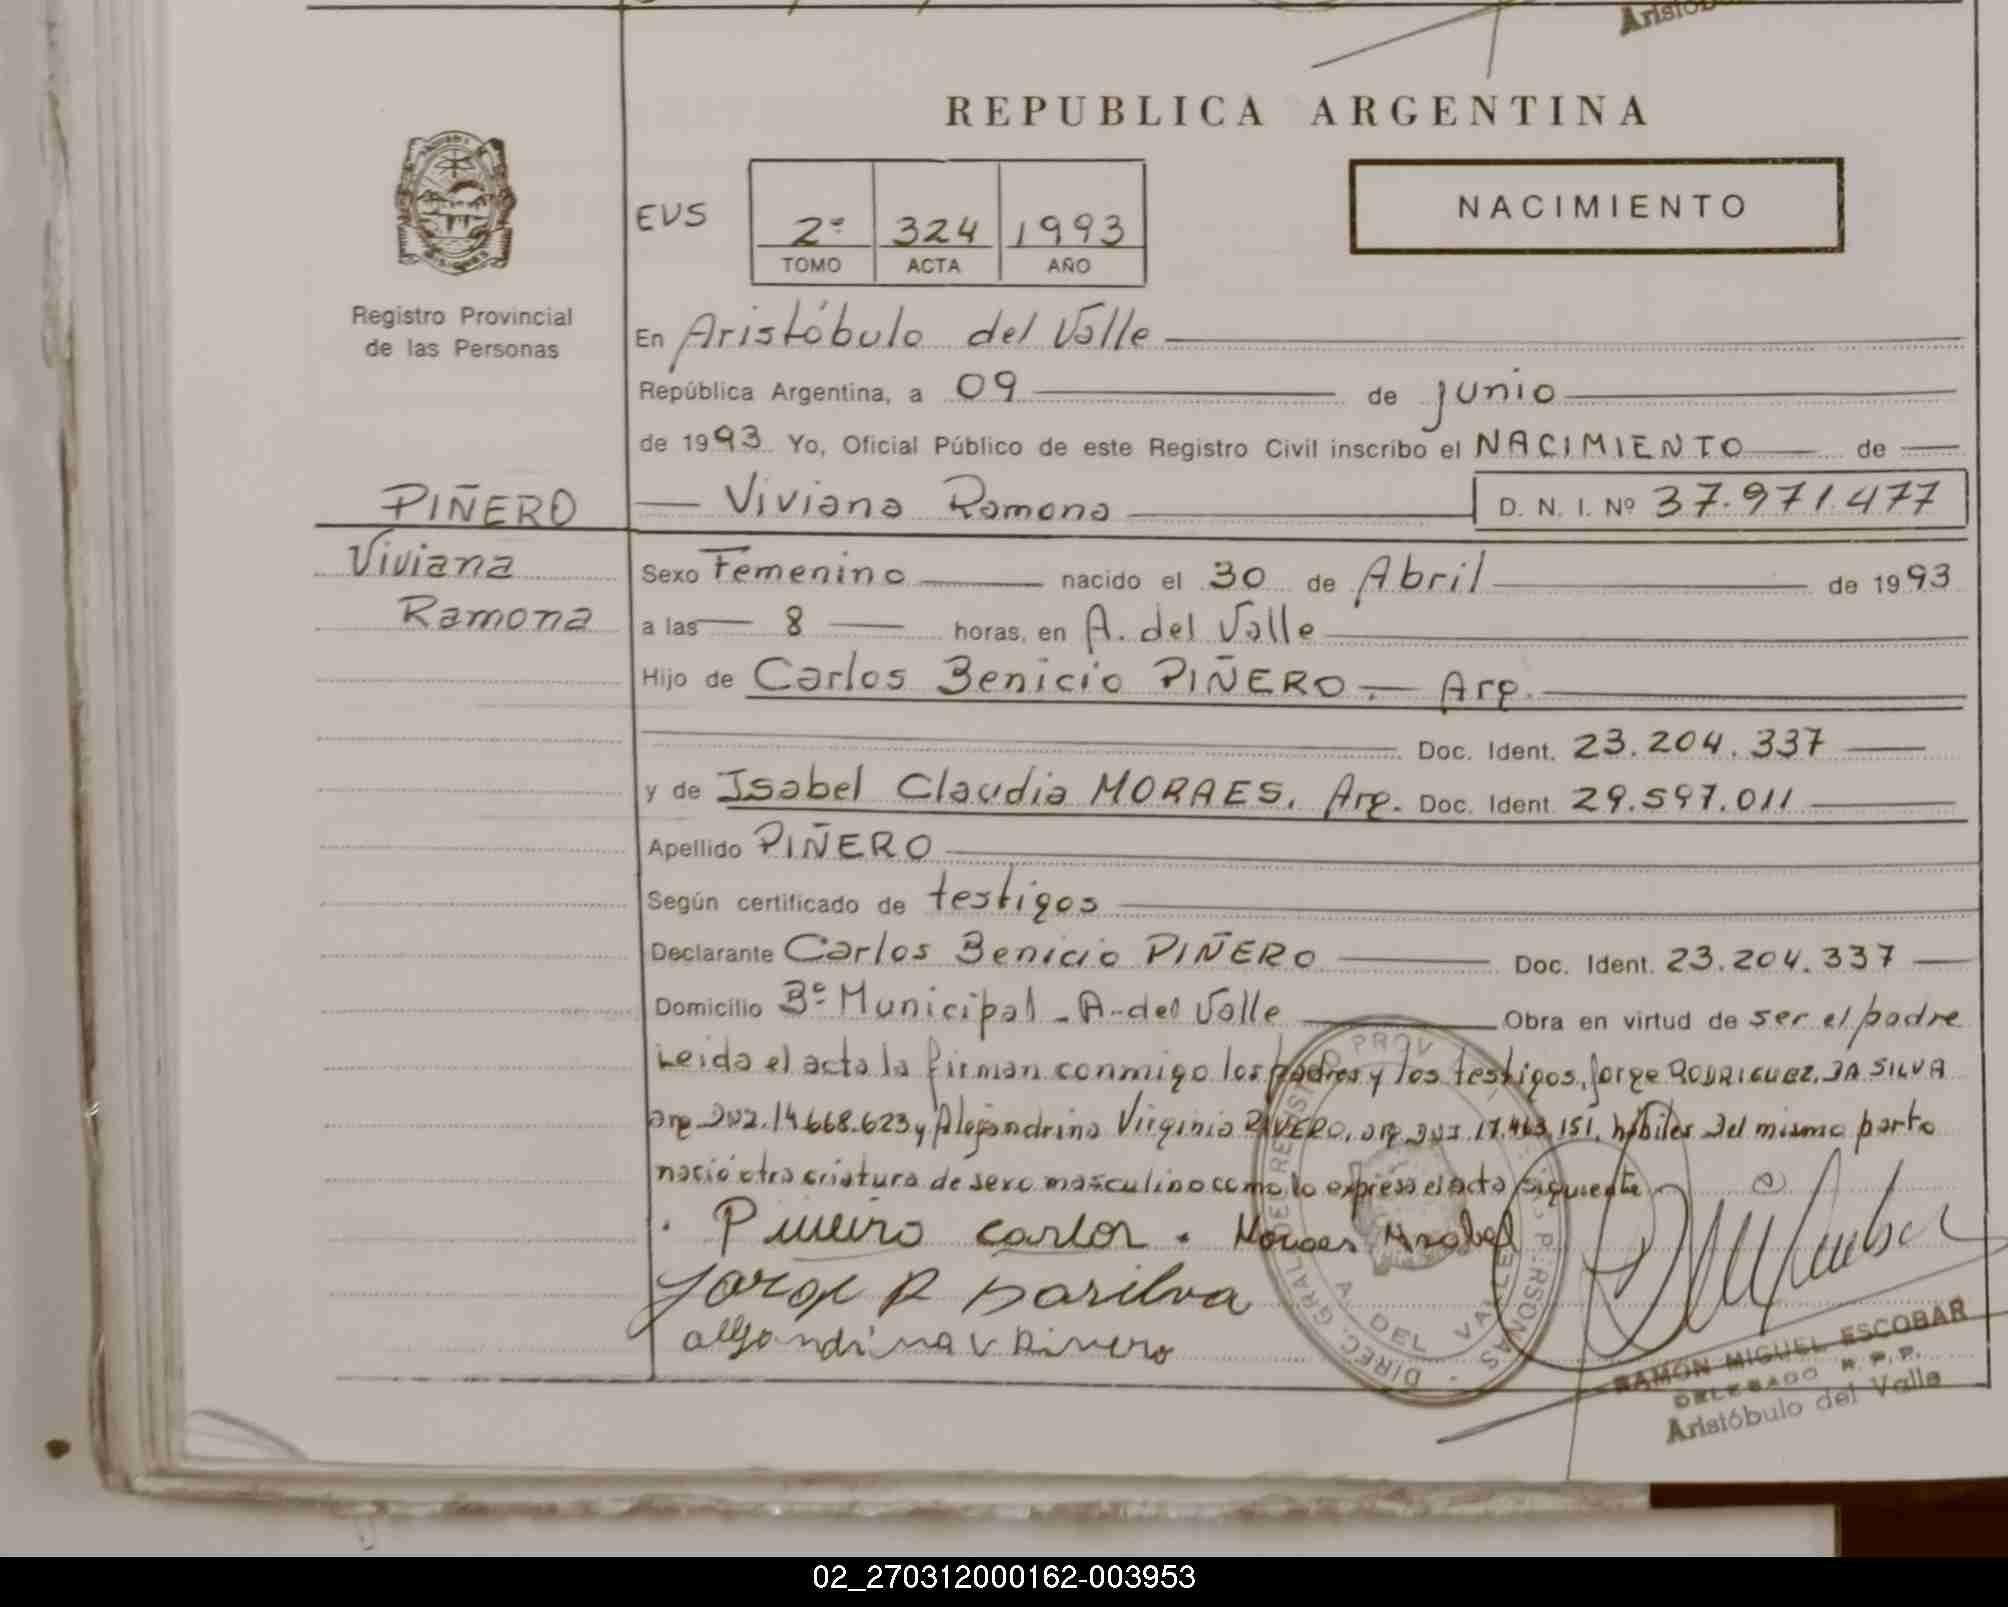 Aristób
REPUBLICA ARGENTINA
NACIMIENTO
EVS
2º 324 1993
TOMO ACTA AÑO
Registro Provincial
de las Personas
En Aristóbulo del Valle
República Argentina, a 09 de junio
de 1993 Yo, Oficial Público de este Registro Civil inscribo el NACIMIENTO de
PIÑERO
Viviana
Ramona
Viviana Ramona D. N. I. Nº 37.971.477
Sexo Femenino nacido el 30 de Abril de 1993
a las 8 horas, en A. del Valle
Hijo de Carlos Benicio PIÑERO.- Arg.
Doc. Ident. 23.204.337
y de Isabel Claudia MORAES. Arg. Doc. Ident. 29.597.011
Apellido PIÑERO
Según certificado de testigos
Declarante Carlos Benicio PIÑERO Doc. Ident. 23.204.337
Domicilio Bº Municipal - A. del Valle Obra en virtud de ser el padre
Leida el acta la firman conmigo los padres y los testigos, Jorge RODRIGUEZ DA SILVA
arg 14.668.623 y Alejandrina Virginia RIVERO, arg 17.463.151, hábiles del mismo parto
nació otra criatura de sexo masculino como lo expresa el acta siguiente
Piñeiro Carlos . Moraes
Jorge R Dasilva
V Rivero
DIREC. GRAL DE REGISTRO PROV. PERSONAS
A DEL VALLE
RAMON MIGUEL ESCOBAR
DELEGADO R.P.P.
Aristóbulo del Valle
02_270312000162-003953